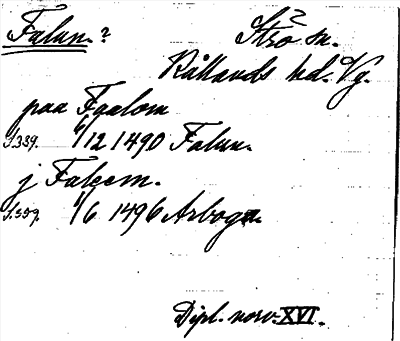 Falun.?
Strö sn.?
Kållands hd. Vg.
paa Fgalom
S.339. 6/12 1490 Falun.
j Falgem.
S.359. 1/6 1496 Arboga.
Dipl. norv. XVI.